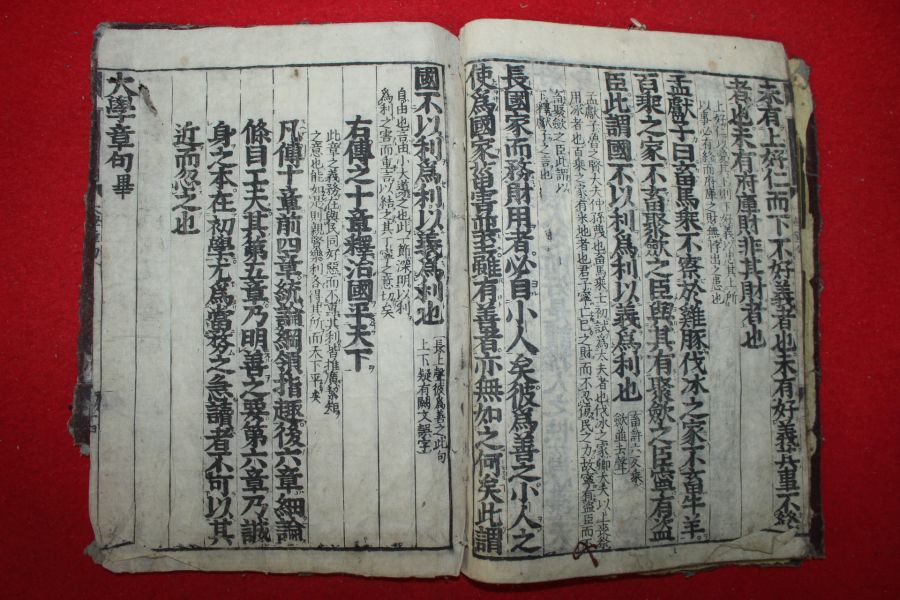 未有上好仁而下不好義者也未有好義其事不終
者也未有府庫財非其財者也
上好仁以愛其下則下好義以忠其上所
以事必有終而府庫之財無悖出之患也
孟獻子曰畜馬乘不察於雞豚伐冰之家不畜牛羊
百乘之家不畜聚斂之臣與其有聚斂之臣寧有盜
臣此謂國不以利為利以義為利也
畜許六反乘
斂並去聲
孟獻子魯之賢大夫仲孫蔑也畜馬乘士初試為大夫者也伐冰之家卿大夫以上喪祭
用冰者也百乘之家有采地者也君子寧亡己之財而不忍傷民之力故寧有盜臣而不
畜聚斂之臣此謂以
下釋獻子之言也
長國家而務財用者必自小人矣彼為善之小人之
使為國家菑害並至雖有善者亦無如之何矣此謂
國不以利為利以義為利也
長上聲彼為善之此句
上下疑有闕文誤字
自由也言由小人導之也此一節深明以利
為利之害而重言以結之其丁寧之意切矣
右傳之十章釋治國平天下
此章之義務在與民同好惡而不專其利皆推廣絜矩
之意也能如是則親賢樂利各得其所而天下平矣
凡傳十章前四章統論綱領指趣後六章細論
條目工夫其第五章乃明善之要第六章乃誠
身之本在初學尤為當務之急讀者不可以其
近而忽之也
大學章句畢